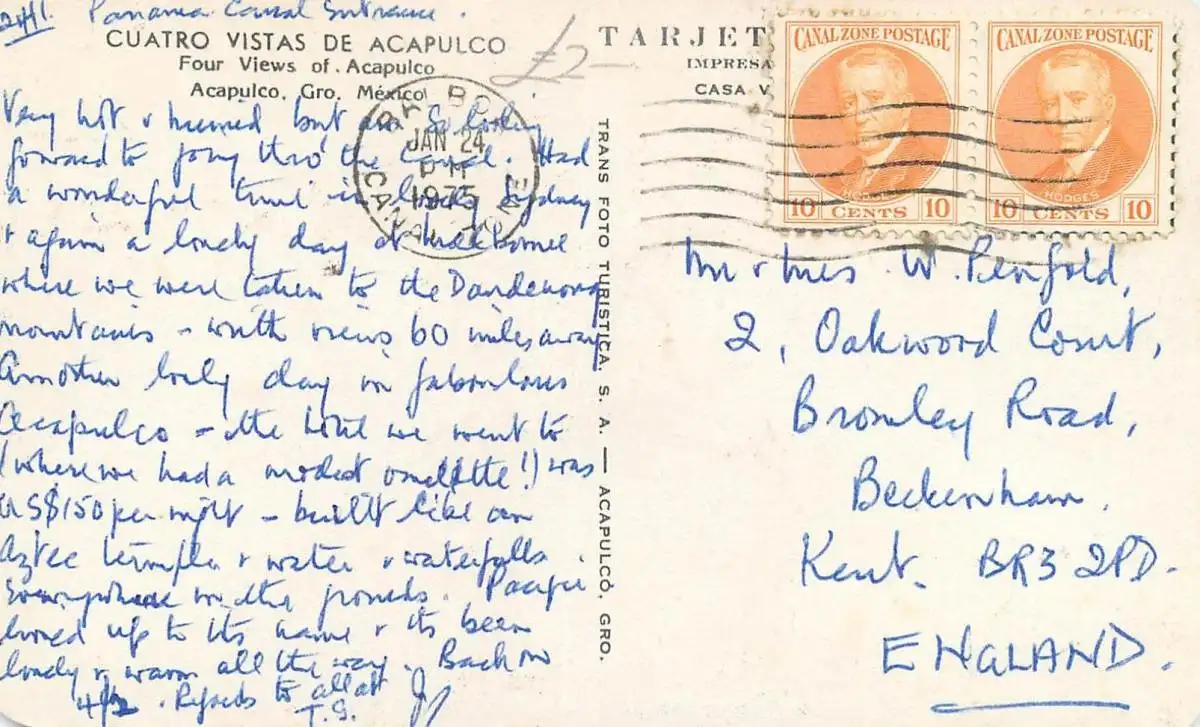 24/1. Panama Canal Entrance.
CUATRO VISTAS DE ACAPULCO
Four Views of Acapulco
Acapulco, Gro. México
£2-
TARJET
IMPRESA
CASA V
Very hot & humid but am so looking
forward to going thro' the Canal. Had
a wonderful time in lovely Sydney
& again a lovely day at Melbourne
where we were taken to the Dandenong
mountains - with views 60 miles away
Another lovely day in fabulous
Acapulco - the hotel we went to
(where we had a modest omelette!) was
US$150 per night - built like an
Aztec temple & water & waterfalls
everywhere in the grounds. Pacific
lived up to its name & its been
lovely & warm all the way. Back on
4/2. Regards to all at
T.G.
BALBOA
JAN 24
PM
1975
CANAL ZONE
TRANS FOTO TURISTICA, S. A. — ACAPULCO, GRO.
CANAL ZONE POSTAGE
HODGES
10 CENTS 10
CANAL ZONE POSTAGE
HODGES
10 CENTS 10
Mr & Mrs. W. Penfold,
2, Oakwood Court,
Bromley Road,
Beckenham.
Kent. BR3 2PD.
ENGLAND.